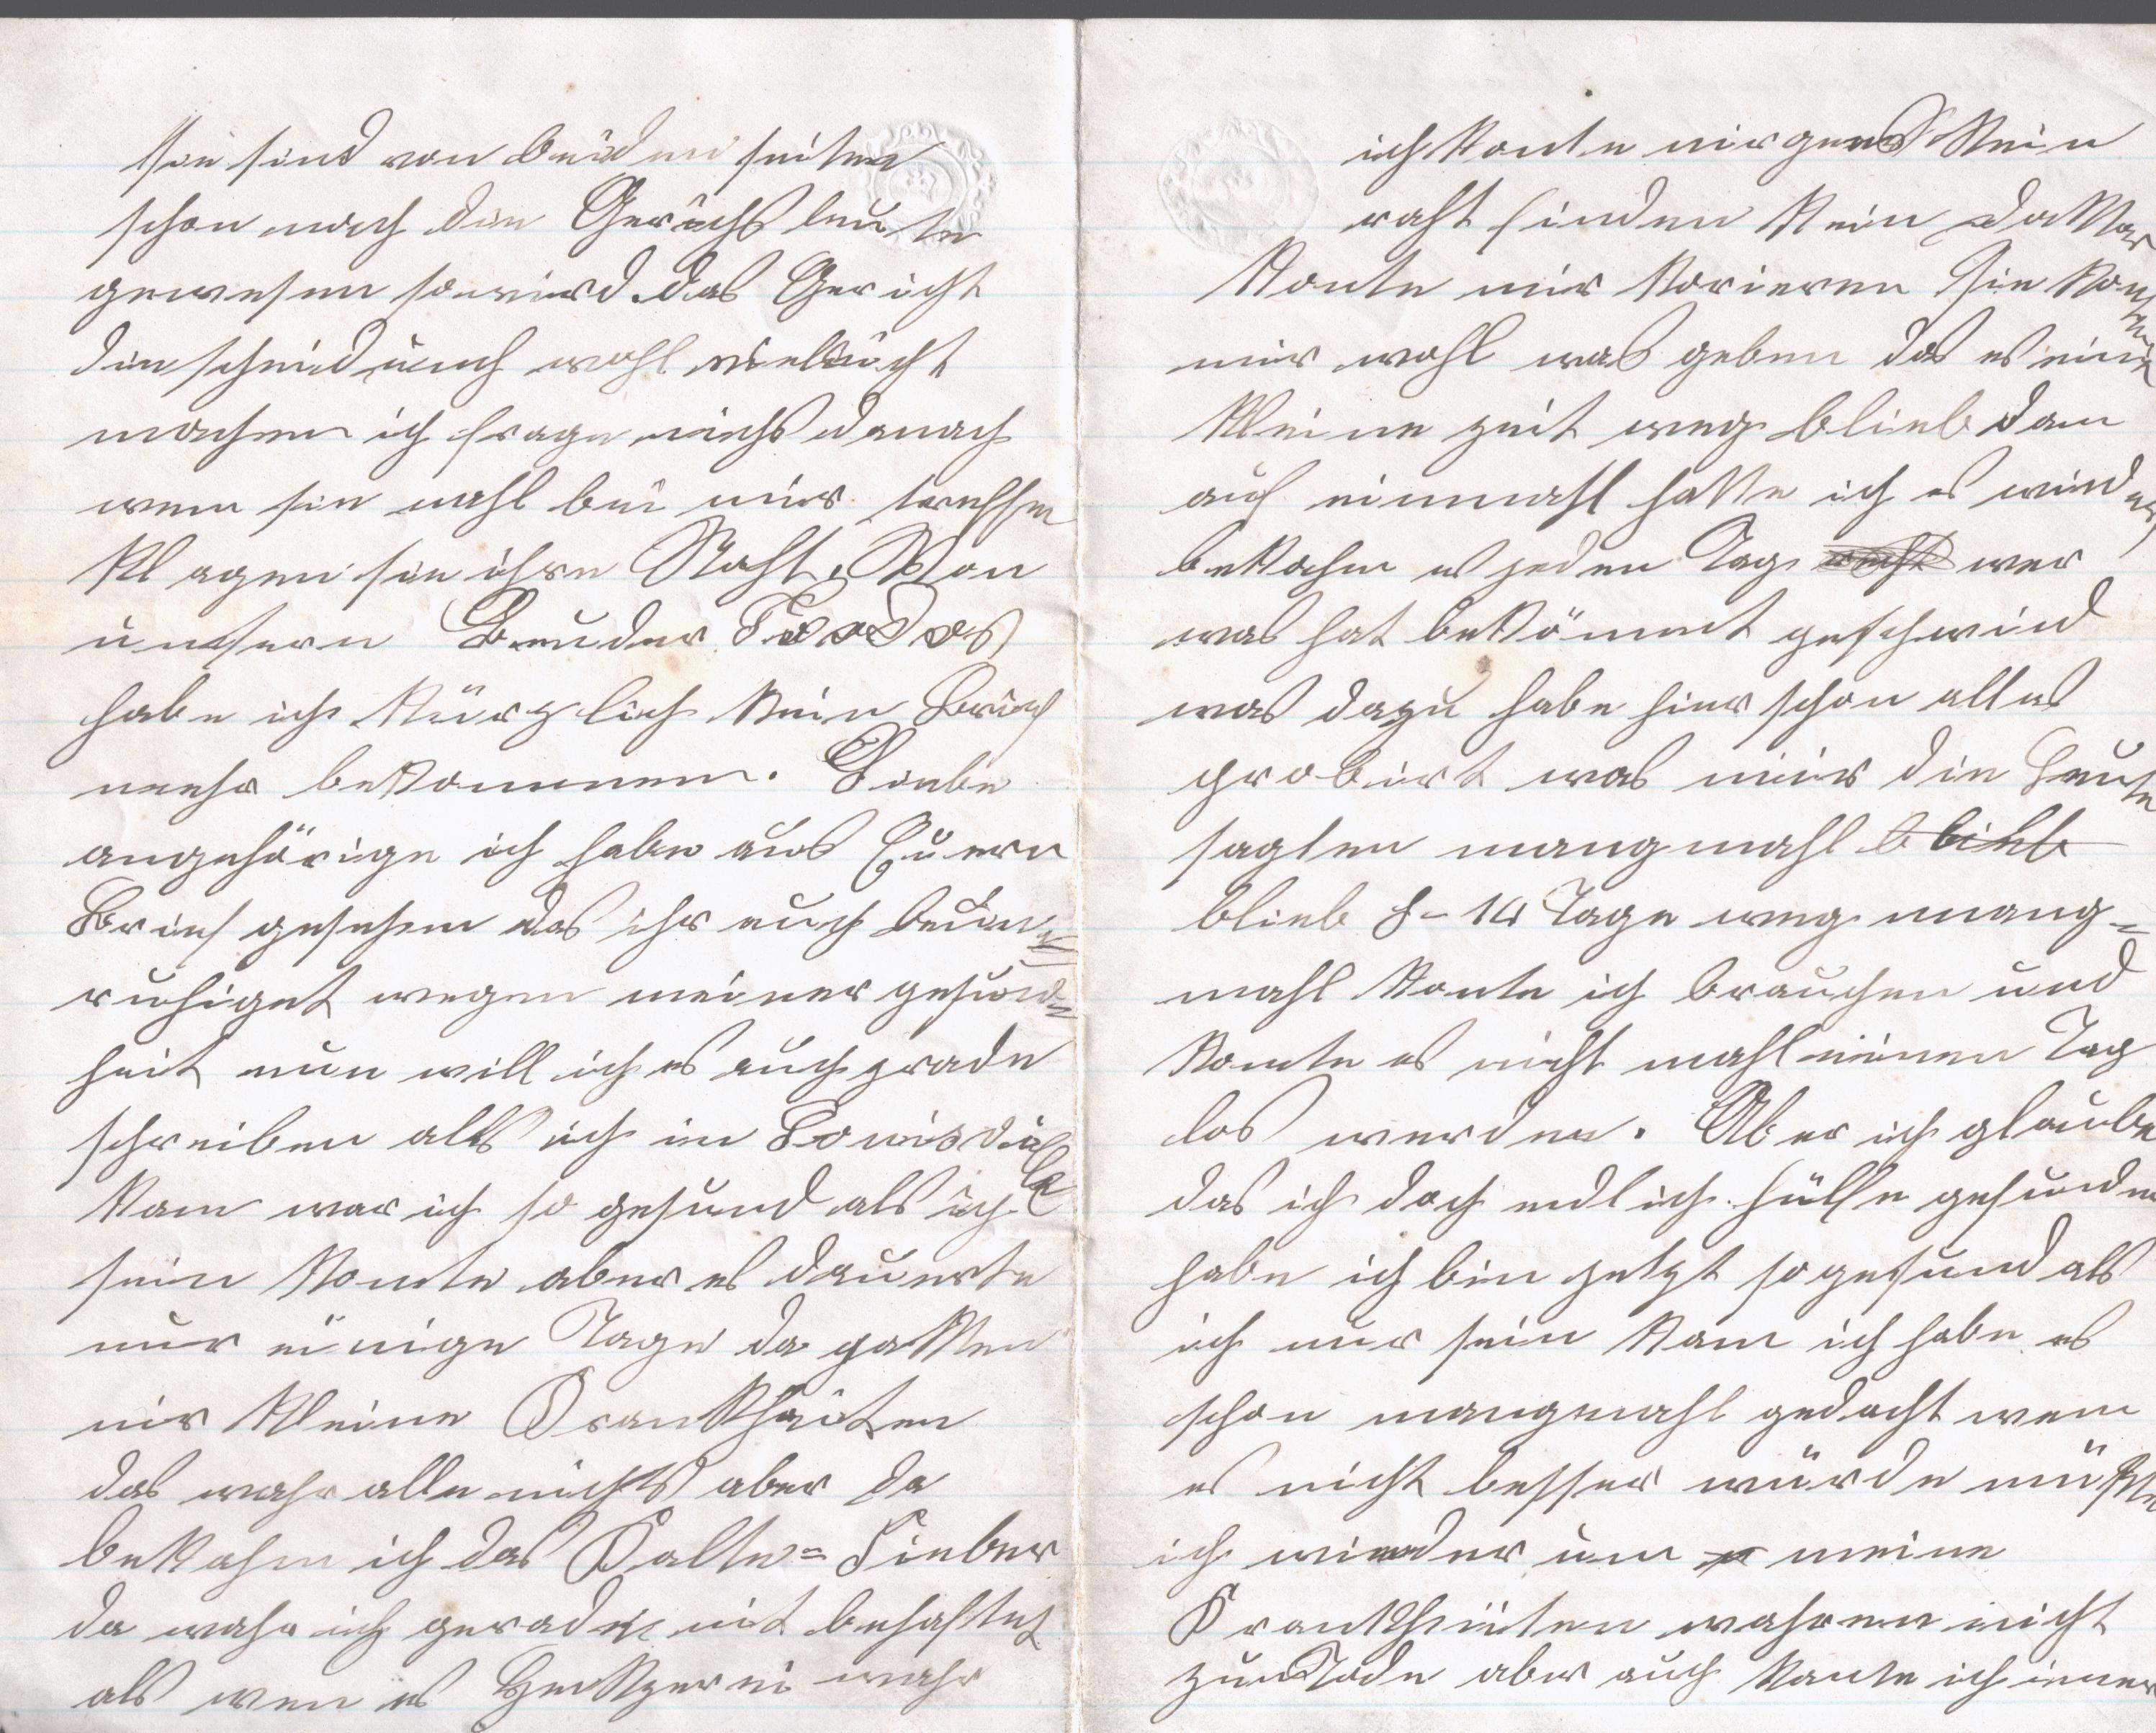 sie sind von beiden seiten
schon nach die Gerichs leute
gewesen so wird das Gericht
die scheidung wohl vieleicht
machen ich frage nichs danach
wem sie mahl bei mir treffen
klagen sie ihre Noht, Von
unsern Bruder
habe ich kürzlich kein Brief
mehr bekommen. Liebe
angehörige ich habe aus Euern
Brief gesehen das ihr euch beun=
ruhiget wegen meiner gesund=
heit nun will ich es euch grade
schreiben als ich in
kam war ich so gesund als ich
sein konte aber es dauerte
nur einige Tage da hatten
wir kleine Krankheiten
das wahr alle nichts aber da
bekahm ich das Kalte=Fieber
da wahr ich gerade mit behaftet
als wen es Hekserei wahr
ich konte nirgens kein
raht finden kein Doktor
konte mir korieren Sie konten
mir wohl was geben das es eine
kleine zeit weg blieb dan
auf einmahl hatte ich es wieder
bekahm es jeden Tag wer
was hat bekömmt geschwind
was dazu habe hier schon alles
probirt was mir die Leute
sagten mangmahl blieb
blieb 8-14 Tage weg mang=
mahl konte ich brauchen und
konte es nicht mahl einen Tag
los werden. Aber ich glaube
das ich doch endlich hülfe gefunden
habe ich bin jetzt so gesund als
ich nur sein kam ich habe es
schon mangmahl gedacht wem
es nicht besser würde müste
ich wieder um meine
Krankheiten wahren nicht
zum Tode aber auch konte ich immer